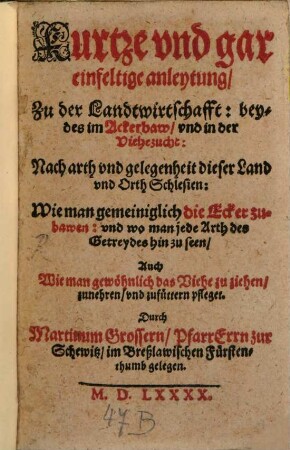 Kurtze vnd gar
einfeltige anleytung/
Zu der Landtwirtschafft: bey-
des im Ackerbaw/ vnd in der
Viehezucht:
Nach arth vnd gelegenheit dieser Land
vnd Orth Schlesien:
Wie man gemeiniglich die Ecker zu-
bawen: vnd wo man jede Arth des
Getreydes hin zu seen/
Auch
Wie man gewöhnlich das Viehe zu ziehen/
zunehren/ vnd zufüttern pfleget.
Durch
Martinum Grossern/ PfarErrn zur
Schewitz/ im Breßlawischen Fürsten-
thumb gelegen.
M. D. LXXXX.
47 B